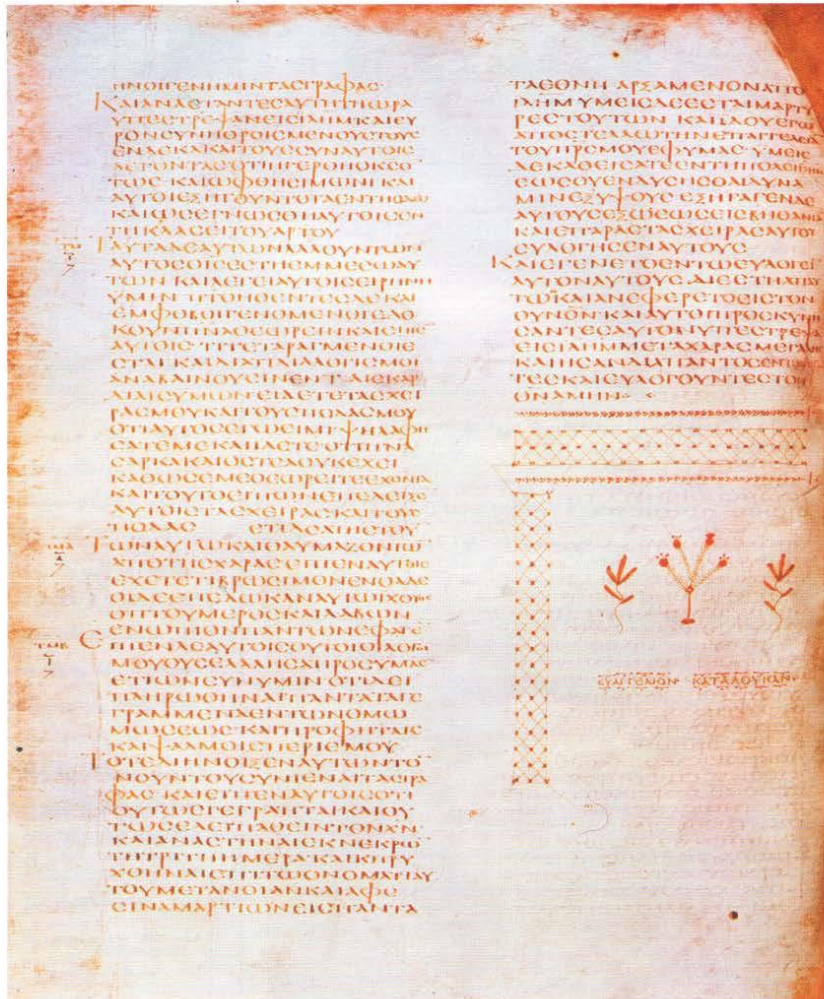 ΗΝΟΙΓΕΝΗΜΙΝΤΑϹΓΡΑΦΑϹ
ΚΑΙΑΝΑϹΤΑΝΤΕϹΑΥΤΗΤΗΩΡΑ
ΥΠΕϹΤΡΕΨΑΝΕΙϹΙΛΗΜΚΑΙΕΥ
ΡΟΝϹΥΝΗΘΡΟΙϹΜΕΝΟΥϹΤΟΥϹ
ΕΝΔΕΚΑΚΑΙΤΟΥϹϹΥΝΑΥΤΟΙϹ
ΛΕΓΟΝΤΑϹΟΤΙΗΓΕΡΘΗΟΚϹΟ
ΤΩϹ ΚΑΙΩΦΘΗϹΙΜΩΝΙΚΑΙ
ΑΥΤΟΙΕΞΗΓΟΥΝΤΟΤΑΕΝΤΗΟΔΩ
ΚΑΙΩϹΕΓΝΩϹΘΗΑΥΤΟΙϹΕΝ
ΤΗΚΛΑϹΕΙΤΟΥΑΡΤΟΥ
ΤΑΥΤΑΔΕΑΥΤΩΝΛΑΛΟΥΝΤΩΝ
ΑΥΤΟϹΟΙϹΕϹΤΗΕΜΜΕϹΩΑΥ
ΤΩΝ ΚΑΙΛΕΓΕΙΑΥΤΟΙϹΕΙΡΗΝΗ
ΥΜΙΝ ΠΤΟΗΘΕΝΤΕϹΔΕΚΑΙ
ΕΜΦΟΒΟΙΓΕΝΟΜΕΝΟΙΕΔΟ
ΚΟΥΝΠΝΑΘΕΩΡΕΙΝΚΑΙΕΙΠΕ
ΑΥΤΟΙϹ ΤΙΤΕΤΑΡΑΓΜΕΝΟΙΕ
ϹΤΑΙΚΑΙΔΙΑΤΙΔΙΑΛΟΓΙϹΜΟΙ
ΑΝΑΒΑΙΝΟΥϹΙΝΕΝΤΑΙϹΚΑΡ
ΔΙΑΙϹΥΜΩΝΕΙΔΕΤΕΤΑϹΧΕΙ
ΡΑϹΜΟΥΚΑΙΤΟΥϹΠΟΔΑϹΜΟΥ
ΟΤΙΑΥΤΟϹΕΓΩΕΙΜΙΨΗΛΑΦΗ
ϹΑΤΕΜΕΚΑΙΙΔΕΤΕΟΤΙΠΝΑ
ϹΑΡΚΑΚΑΙΟϹΤΕΑΟΥΚΕΧΕΙ
ΚΑΘΩϹΕΜΕΘΕΩΡΕΙΤΕΕΧΟΝΤΑ
ΚΑΙΤΟΥΤΟΕΙΠΩΝΕΠΕΔΕΙΞΕ
ΑΥΤΟΙϹΤΑϹΧΕΙΡΑϹΚΑΙΤΟΥϹ
ΠΟΔΑϹ ΕΤΙΔΕΑΠΙϹΤΟΥ
ΤΩΝΑΥΤΩΚΑΙΘΑΥΜΑΖΟΝΤΩ
ΑΠΟΤΗϹΧΑΡΑϹΕΙΠΕΝΑΥΤΟΙϹ
ΕΧΕΤΕΤΙΒΡΩϹΙΜΟΝΕΝΘΑΔΕ
ΟΙΔΕΕΠΕΔΩΚΑΝΑΥΤΩΙΧΘΥΟϹ
ΟΠΤΟΥΜΕΡΟϹΚΑΙΛΑΒΩΝ
ΕΝΩΠΙΟΝΠΑΝΤΩΝΕΦΑΓΕ
ΕΙΠΕΝΔΕΑΥΤΟΙϹΟΥΤΟΙΟΙΛΟΓΟΙ
ΜΟΥΟΥϹΕΛΑΛΗϹΑΠΡΟϹΥΜΑϹ
ΕΤΙΩΝϹΥΝΥΜΙΝΟΤΙΔΕΙ
ΠΛΗΡΩΘΗΝΑΙΠΑΝΤΑΤΑΓΕ
ΓΡΑΜΜΕΝΑΕΝΤΩΝΟΜΩ
ΜΩϹΕΩϹ ΚΑΙΠΡΟΦΗΤΑΙϹ
ΚΑΙΨΑΛΜΟΙϹΠΕΡΙΕΜΟΥ
ΤΟΤΕΔΙΗΝΟΙΞΕΝΑΥΤΩΝΤΟ
ΝΟΥΝΤΟΥϹΥΝΙΕΝΑΙΤΑϹΓΡΑ
ΦΑϹ ΚΑΙΕΙΠΕΝΑΥΤΟΙϹΟΤΙ
ΟΥΤΩϹΓΕΓΡΑΠΤΑΙΚΑΙΟΥ
ΤΩϹΕΔΕΙΠΑΘΕΙΝΤΟΝΧΝ
ΚΑΙΑΝΑϹΤΗΝΑΙΕΚΝΕΚΡΩ
ΤΗΤΡΙΤΗΗΜΕΡΑ ΚΑΙΚΗΡΥ
ΧΘΗΝΑΙΕΠΙΤΩΟΝΟΜΑΤΙΑΥ
ΤΟΥΜΕΤΑΝΟΙΑΝΚΑΙΑΦΕ
ϹΙΝΑΜΑΡΤΙΩΝΕΙϹΠΑΝΤΑ
ΤΑΕΘΝΗ ΑΡΞΑΜΕΝΟΝΑΠΟ
ΙΛΗΜ ΥΜΕΙϹΔΕΕϹΤΑΙΜΑΡΤΥ
ΡΕϹΤΟΥΤΩΝ ΚΑΙΙΔΟΥΕΓΩ
ΑΠΟϹΤΕΛΛΩΤΗΝΕΠΑΓΓΕΛΕΙΑ
ΤΟΥΠΡϹΜΟΥΕΦΥΜΑϹ ΥΜΕΙϹ
ΔΕΚΑΘΕΙϹΑΤΕΕΝΤΗΠΟΛΕΙΙΗΜ
ΕΩϹΟΥΕΝΔΥϹΗϹΘΑΙΔΥΝΑ
ΜΙΝΕΞΥΨΟΥϹ ΕΞΗΓΑΓΕΝΔΕ
ΑΥΤΟΥϹΕΞΩΕΩϹΕΙϹΒΗΘΑΝΙΑ
ΚΑΙΕΠΑΡΑϹΤΑϹΧΕΙΡΑϹΑΥΤΟΥ
ΕΥΛΟΓΗϹΕΝΑΥΤΟΥϹ
ΚΑΙΕΓΕΝΕΤΟΕΝΤΩΕΥΛΟΓΕΙ
ΑΥΤΟΝΑΥΤΟΥϹ ΔΙΕϹΤΗΑΠΑΥ
ΤΩΚΑΙΑΝΕΦΕΡΕΤΟΕΙϹΤΟΝ
ΟΥΝΟΝ ΚΑΙΑΥΤΟΙΠΡΟϹΚΥΝΗ
ϹΑΝΤΕϹΑΥΤΟΝΥΠΕϹΤΡΕΨΑ
ΕΙϹΙΛΗΜΜΕΤΑΧΑΡΑϹΜΕΓΑΛΗϹ
ΚΑΙΗϹΑΝΔΙΑΠΑΝΤΟϹΕΝΤΩΙ
ΤΕϹΚΑΙΕΥΛΟΓΟΥΝΤΕϹΤΟΝ
ΘΝΑΜΗΝ
ΕΥΑΓΓΕΛΙΟΝ ΚΑΤΑΛΟΥΚΑΝ